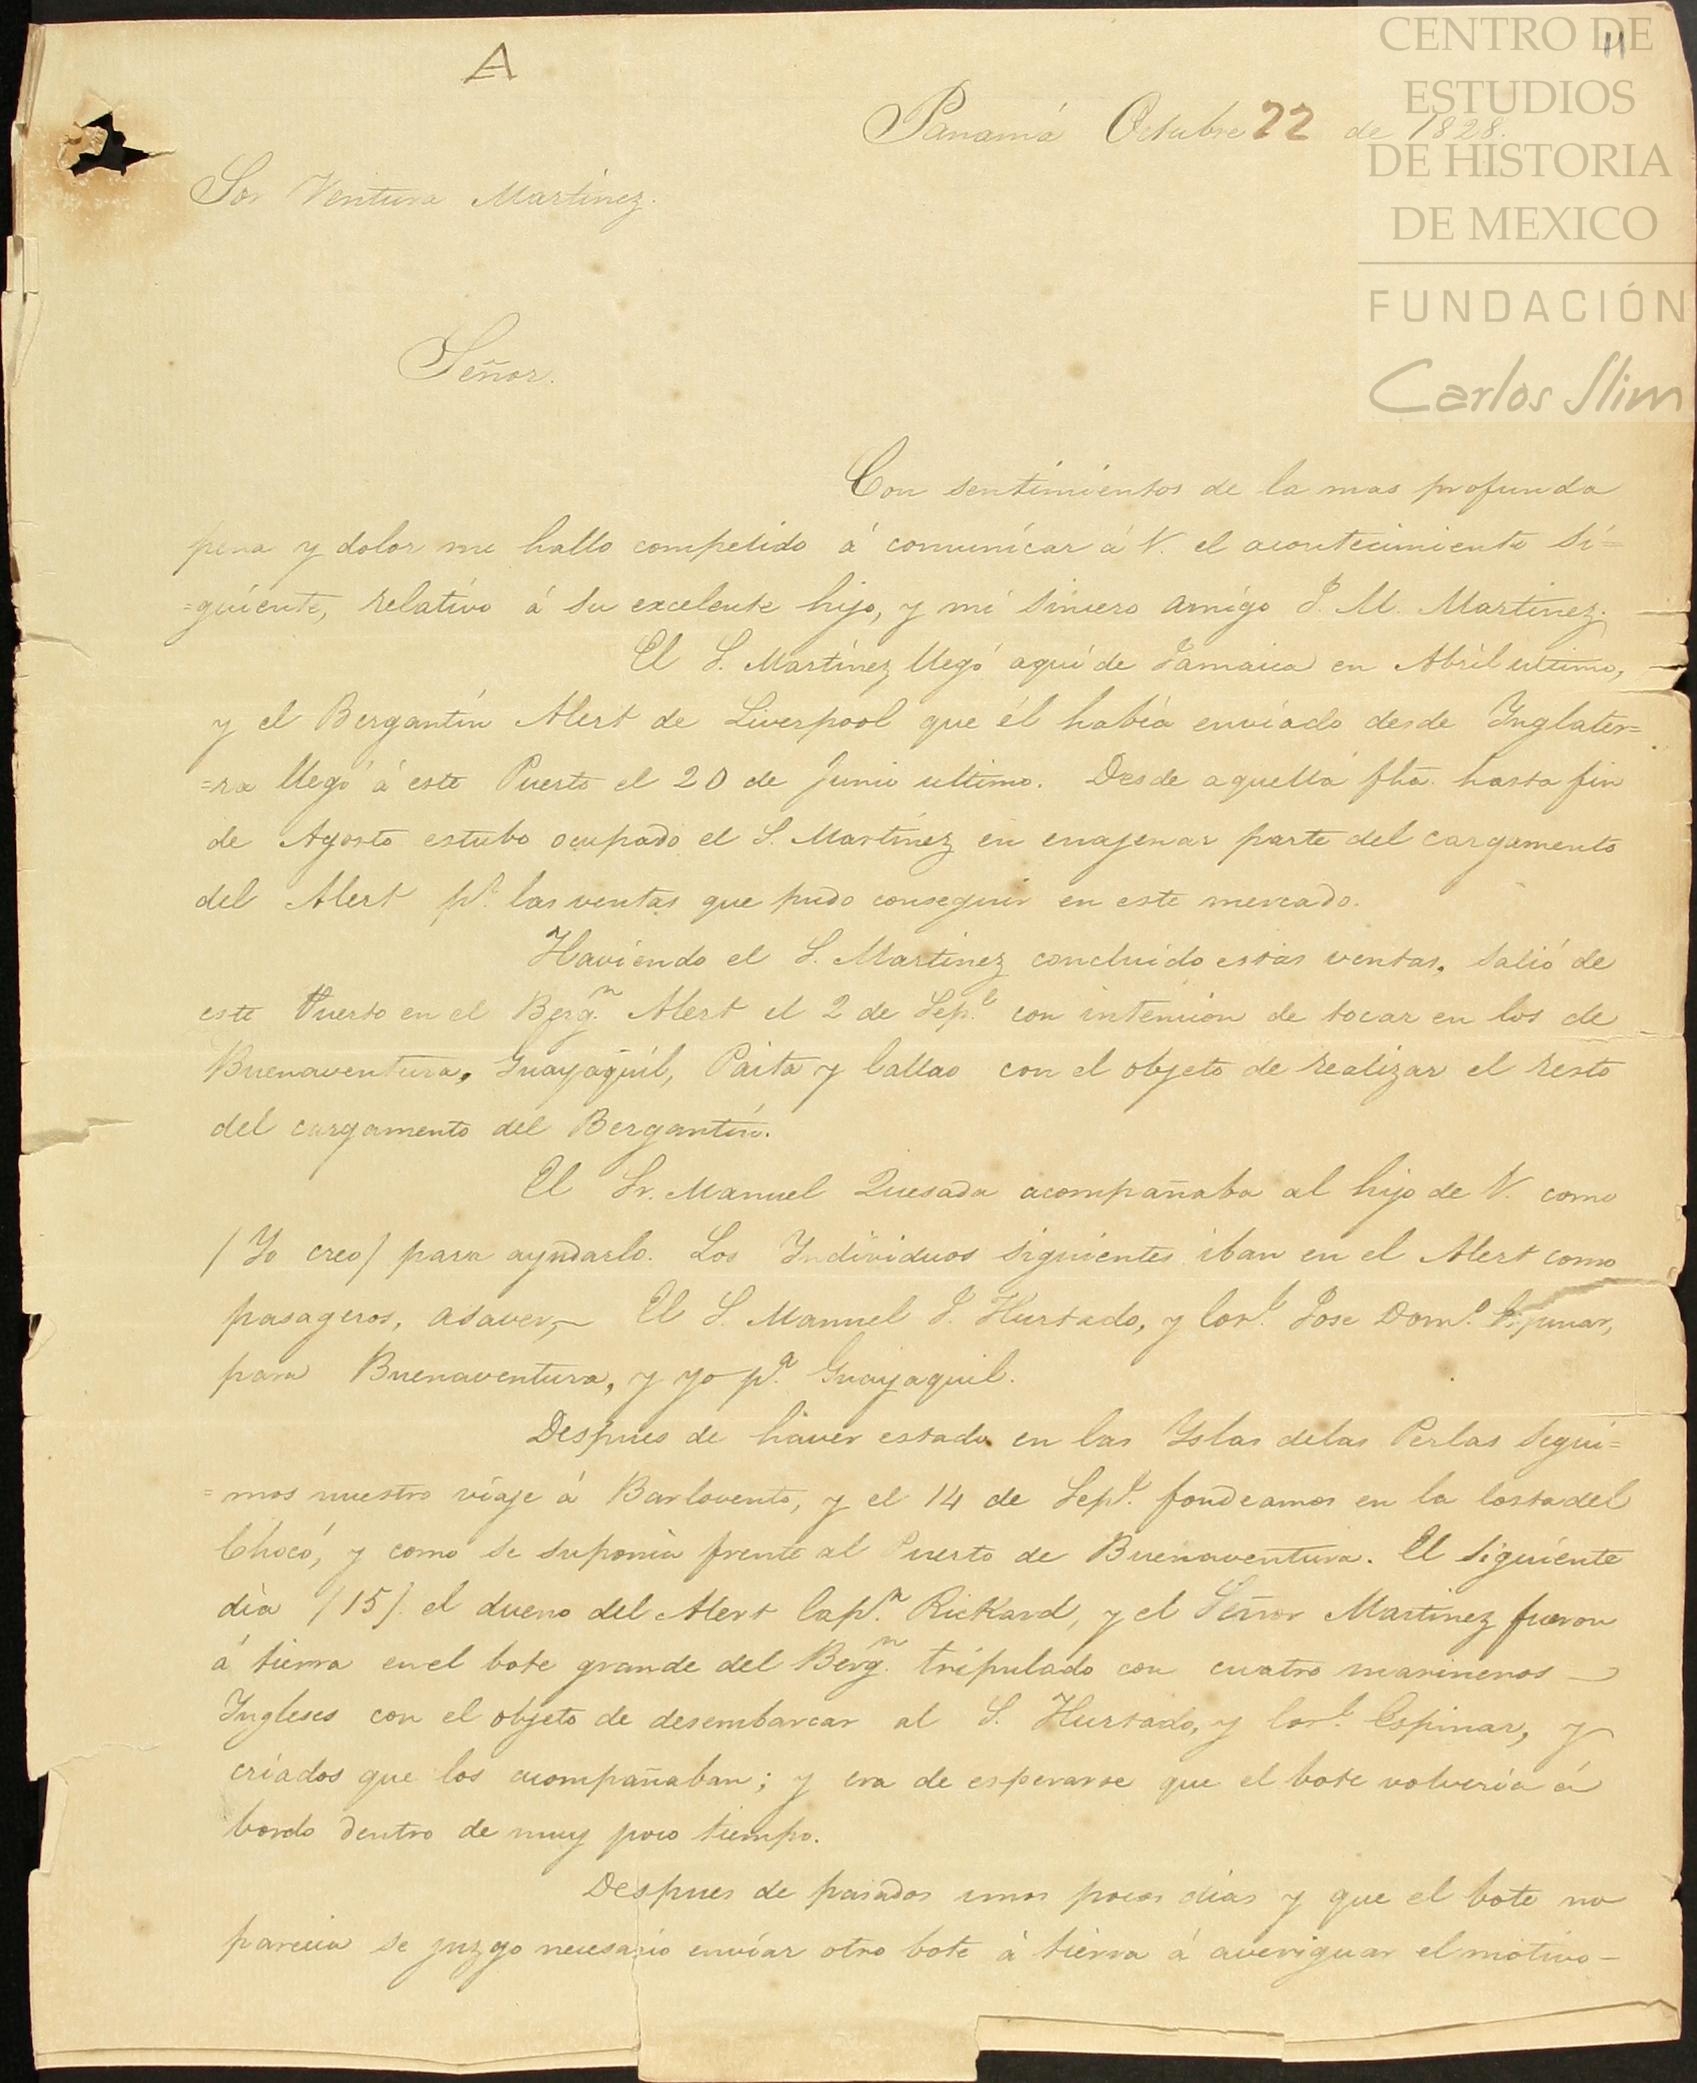 A
11
CENTRO DE
ESTUDIOS
DE HISTORIA
DE MEXICO
FUNDACIÓN
Carlos Slim
Panamá Octubre 22 de 1828.
Sor Ventura Martinez.
Señor.
Con sentimientos de la mas profunda
pena y dolor me hallo compelido á comunicar á V. el acontecimiento si=
=guiente, relativo á su excelente hijo, y mi sincero amigo J. M. Martinez.
El S. Martinez llegó aqui de Jamaica en Abril ultimo,
y el Bergantin Alert de Liverpool que él habia enviado desde Inglater=
=ra llegó á este Puerto el 20 de Junio ultimo. Desde aquella fha. hasta fin
de Agosto estubo ocupado el S. Martinez en enajenar parte del cargamento
del Alert pr. las ventas que pudo conseguir en este mercado.
Haviendo el S. Martinez concluido estas ventas, salió de
este Puerto en el Bergn. Alert el 2 de Sepe. con intencion de tocar en los de
Buenaventura, Guayaquil, Paita y Callao con el objeto de realizar el resto
del cargamento del Bergantin.
El Sr. Manuel Quesada acompañaba al hijo de V. como
/ Yo creo / para ayudarlo. Los Individuos siguientes iban en el Alert como
pasageros, asaver, El S. Manuel J. Hurtado, y Corl. Jose Domo. Espinar,
para Buenaventura, y yo pa. Guayaquil.
Despues de haver estado en las Yslas delas Perlas segui=
=mos nuestro viaje á Barlovento, y el 14 de Sepe. fondeamos en la Costa del
Chocó, y como se suponia frente al Puerto de Buenaventura. El siguiente
dia / 15 / el dueno del Alert Capn. Rickard, y el Señor Martinez fueron
á tierra en el bote grande del Bergn. tripulado con cuatro marineros
Ingleses con el objeto de desembarcar al S. Hurtado, y Corl. Espinar, y
criados que los acompañaban; y era de esperarse que el bote volveria á
bordo dentro de muy poco tiempo.
Despues de pasados unos pocos dias y que el bote no
parecia se juzgo necesario enviar otro bote á tierra á averiguar el motivo